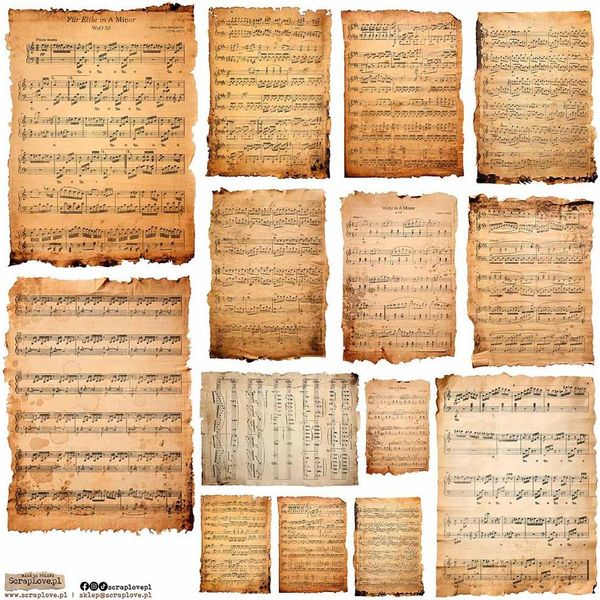 Für Elise in A Minor
WoO 59
Poco moto
Waltz in A Minor
MADE IN POLAND
ScrapLove.pl
scraplovepl
www.scraplove.pl | sklep@scraplove.pl